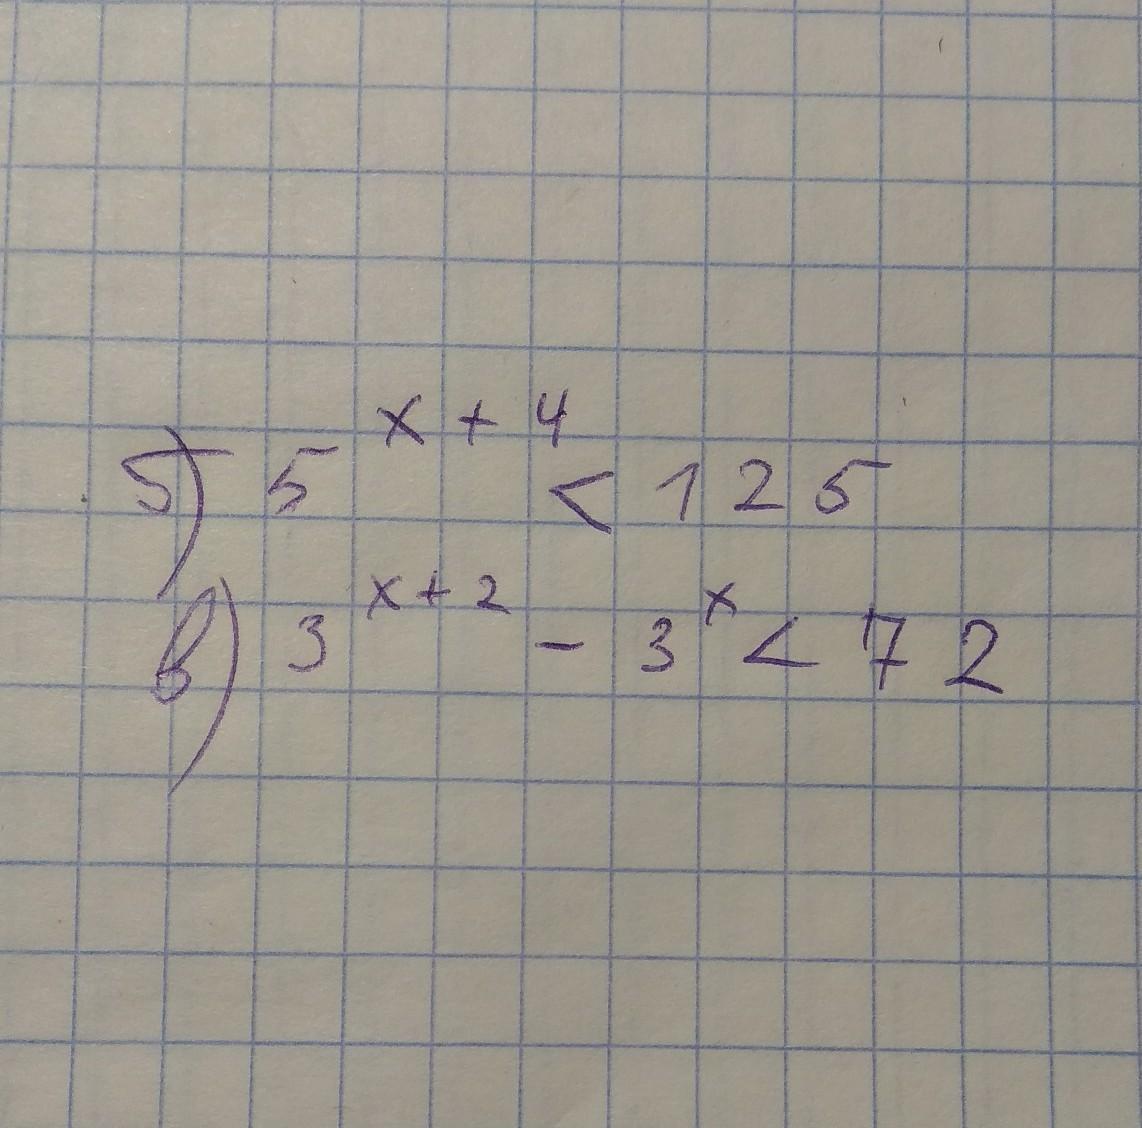 б) 5^{x+4} < 125
в) 3^{x+2} - 3^x < 72